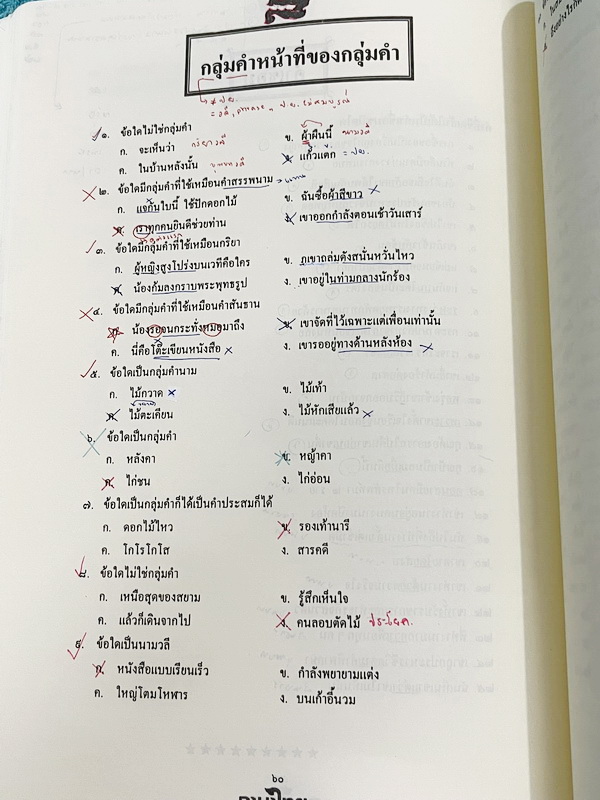 กลุ่มคำหน้าที่ของกลุ่มคำ
≠ ปย.
๑. ข้อใดไม่ใช่กลุ่มคำ
ก. จะเห็นว่า กริยาวลี ข. ผ้าผืนนี้ นามวลี
ค. ในบ้านหลังนั้น บุพบทวลี ง. แก้วแตก = ปย.
๒. ข้อใดมีกลุ่มคำที่ใช้เหมือนคำสรรพนาม
ก. แจกันใบนี้ ใช้ปักดอกไม้ ข. ฉันซื้อผ้าสีขาว
ค. เราทุกคนยินดีช่วยท่าน ง. เขาออกกำลังตอนเช้าวันเสาร์
๓. ข้อใดมีกลุ่มคำที่ใช้เหมือนกริยา
ก. ผู้หญิงสูงโปร่งบนเวทีคือใคร ข. ภูเขาถล่มดังสนั่นหวั่นไหว
ค. น้องก้มลงกราบพระพุทธรูป ง. เขาอยู่ในท่ามกลางนักร้อง
๔. ข้อใดมีกลุ่มคำที่ใช้เหมือนคำสันธาน
ก. น้องรอจนกระทั่งหมอมาถึง ข. เขาจัดที่ไว้เฉพาะแต่เพื่อนเท่านั้น
ค. นี่คือโต๊ะเขียนหนังสือ ง. เขารออยู่ทางด้านหลังห้อง
๕. ข้อใดเป็นกลุ่มคำนาม
ก. ไม้กวาด ข. ไม้เท้า
ค. ไม้ตะเคียน ง. ไม้หักเสียแล้ว
๖. ข้อใดเป็นกลุ่มคำ
ก. หลังคา ข. หญ้าคา
ค. ไก่ชน ง. ไก่อ่อน
๗. ข้อใดเป็นกลุ่มคำก็ได้เป็นคำประสมก็ได้
ก. ดอกไม้ไหว ข. รองเท้านารี
ค. โกโรโกโส ง. สารคดี
๘. ข้อใดไม่ใช่กลุ่มคำ
ก. เหนือสุดของสยาม ข. รู้สึกเห็นใจ
ค. แล้วก็เดินจากไป ง. คนลอบตัดไม้ ประโยค
๙. ข้อใดเป็นนามวลี
ก. หนังสือแบบเรียนเร็ว ข. กำลังพยายามแต่ง
ค. ใหญ่โตมโหฬาร ง. บนเก้าอี้นวม
๖๐